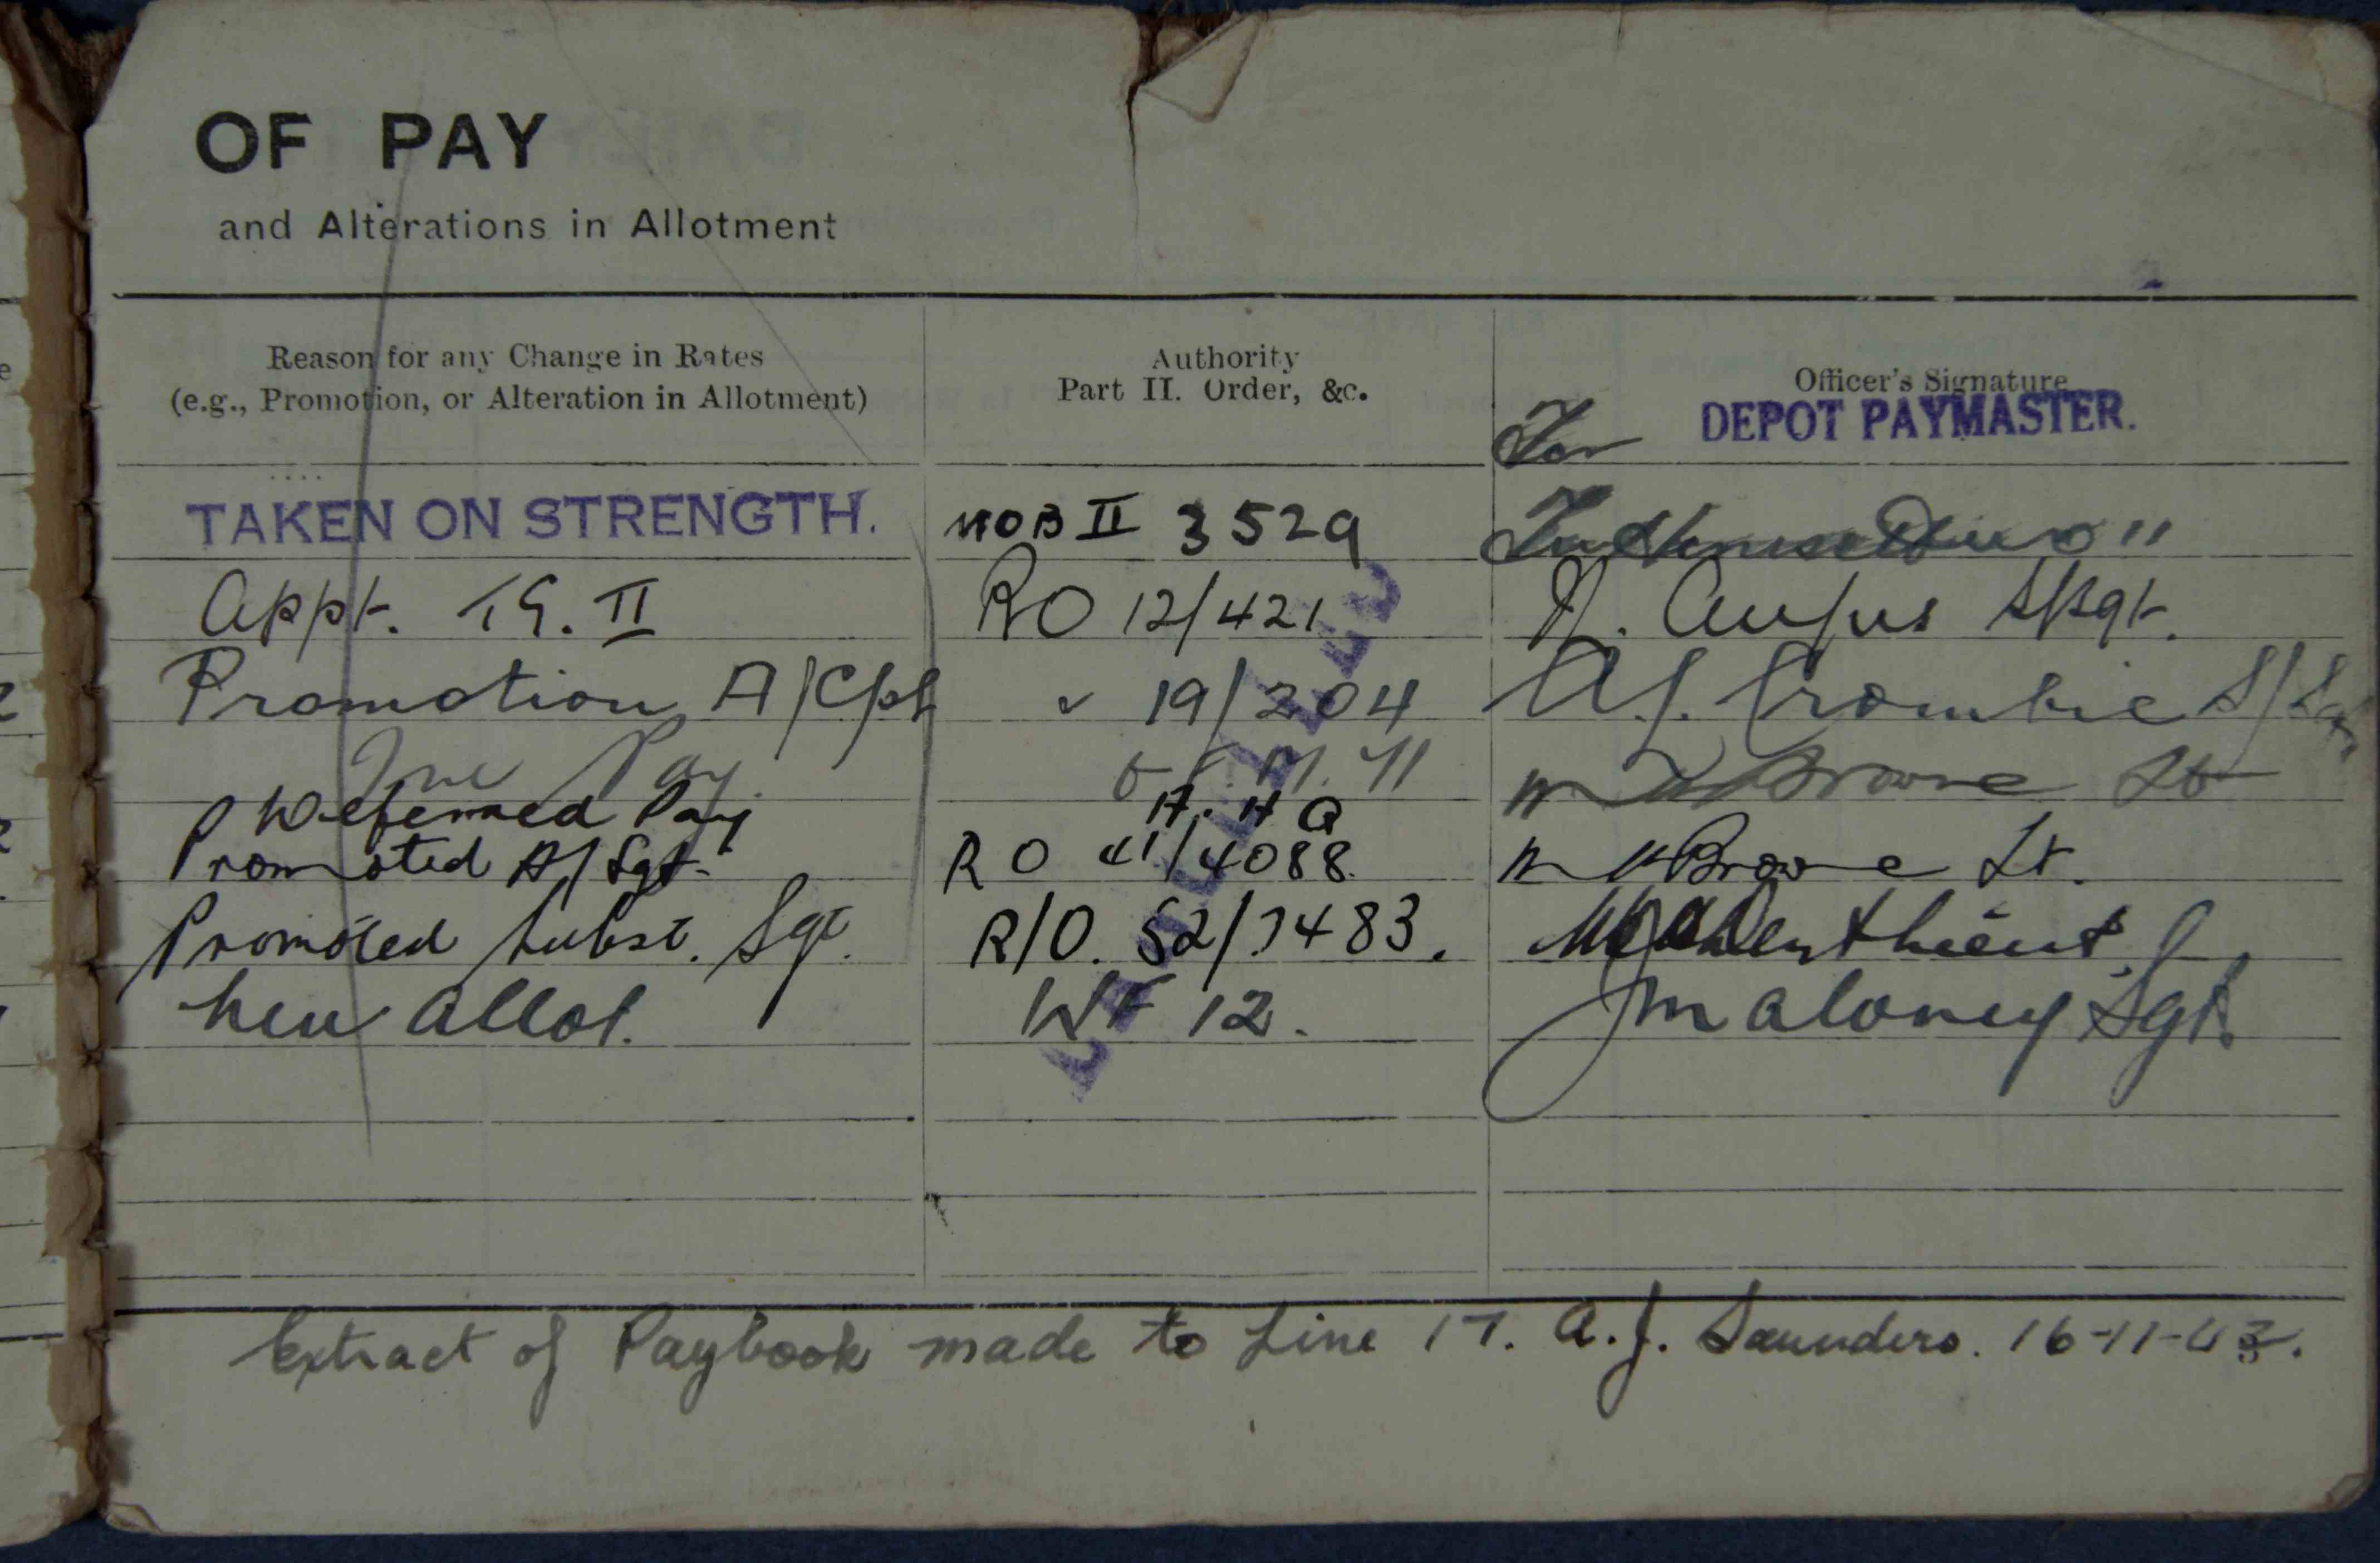 OF PAY
and Alterations in Allotment
Reason for any Change in Rates
(e.g., Promotion, or Alteration in Allotment)
Authority
Part II. Order, &c.
Officer's Signature
For DEPOT PAYMASTER.
TAKEN ON STRENGTH. MOB II 3529 "
Appt. TG. II RO 12/421 Angus S/Sgt.
Promotion A/Cpl " 19/204 A.J. Crombie S/Sgt
Inc Pay Browne Lt
Deferred Pay A.H.Q
Promoted A/Sgt. RO 41/4088 Browne Lt.
Promoted Subst. Sgt. R/O. 52/7483. Lieut.
New Allot. WF 12. J Maloney Sgt.
CANCELLED
Extract of Paybook made to Line 17. A.J. Saunders. 16-11-43.